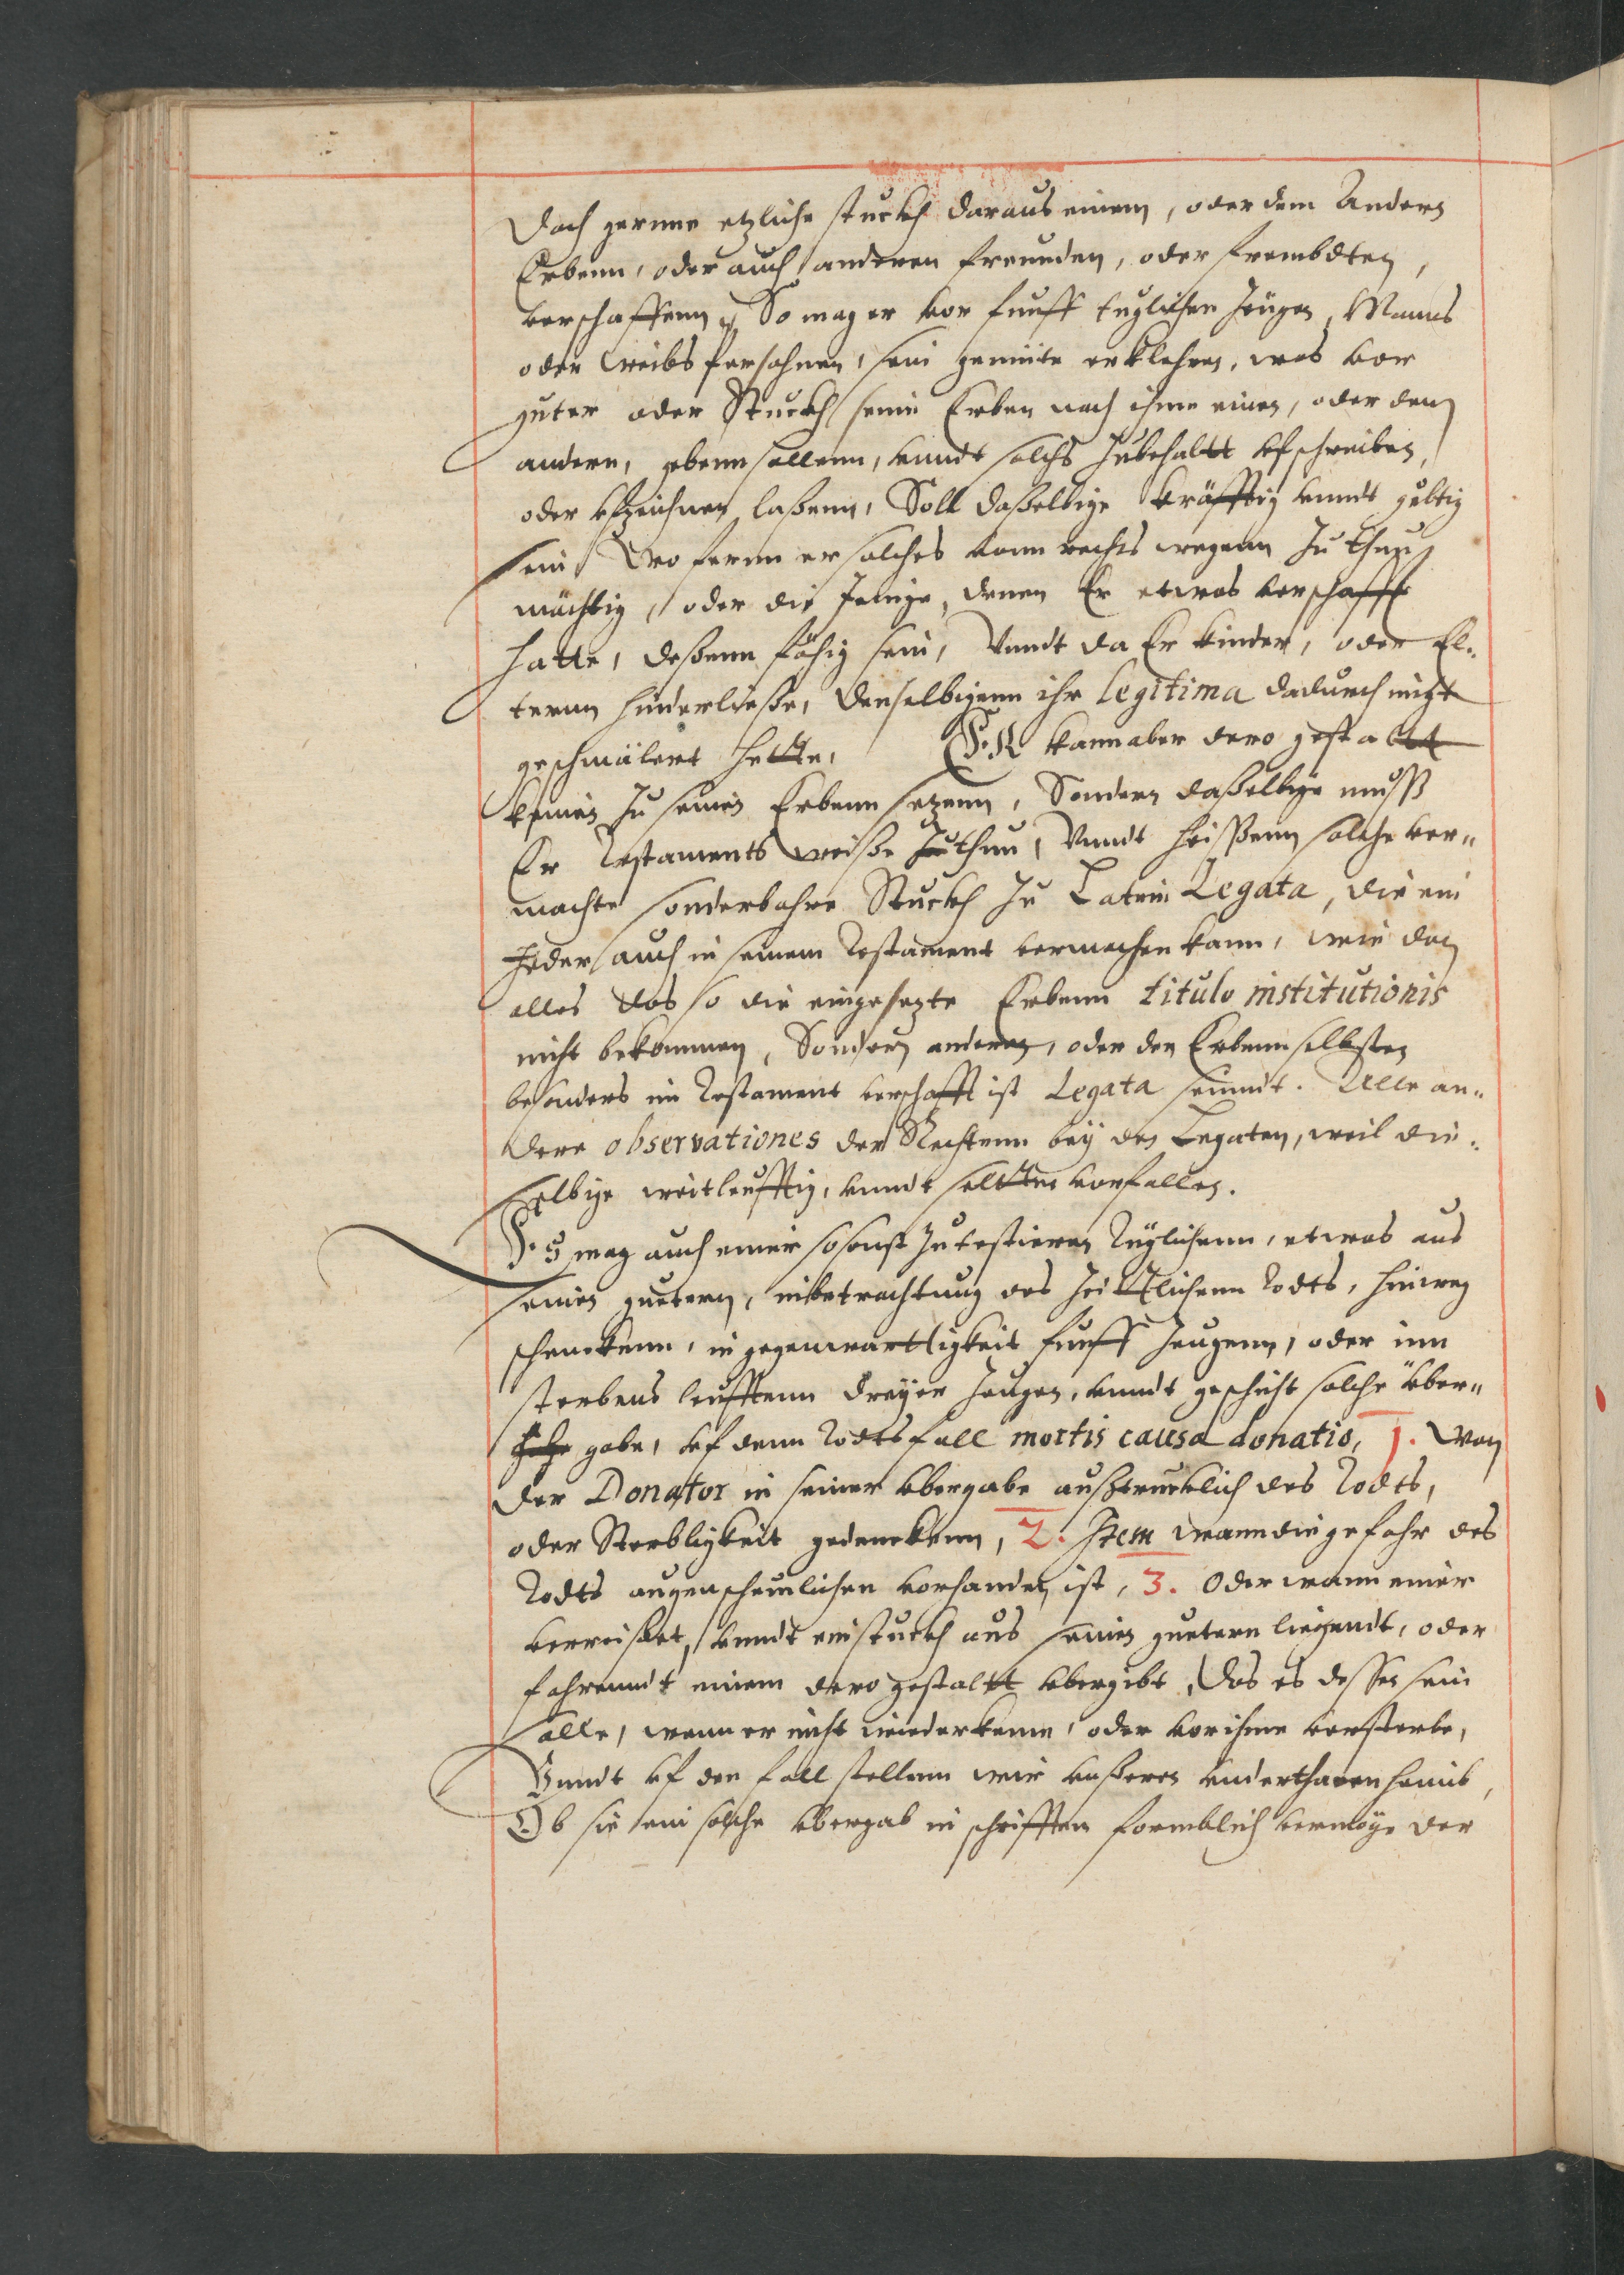 doch gernne etzliche stuckh daraus einem, oder dem Andern
Erbenn, oder auch anderen freunden, oder frembdten,
verschaffenn, So mag er vor funff tuglichen Zeügen, Manns
oder weibs persohnen, sein gemüte erklehren, was vor
guter oder Stuckh seine Erben nach ihme einen, oder dem
andern, gebenn sollenn, vnndt solchs Zubehaltt vfschreiben,
oder vfzeichnen laßenn, Soll daßelbige kräfftig vnndt gültig
sein Wo fernn er solches vonn rechts wegenn Zu thun
mächtig, oder die Jenige, denen Er etwas verschafft
hatte, deßenn fähig sein, Vnndt da Er kinder, oder El-
ternn hinderließe, denselbigenn ihr Legitima dadurch nicht
geschmälert hette, Er kann aber dero gestaltt
keinen Zu seinen Erbenn setzenn, Sondern daßelbige muß
Er Testaments weiße thun, Vnndt heißenn solche ver-
machte sonderbahre Stuckh Zu Latein Legata, die ein
Jeder auch in seinem Testament vermachen kann, wie den
alles das so die eingesezte Erbenn titulo institutionis
nicht bekommen, Sondern anderen, oder den Erbenn selbsten
besonders im Testament verschafft ist Legata seinndt. Alle an-
dere observationes der Rechtenn bey den Legaten, weil die-
selbige weitleufftig, vnndt seltten vorfallen.
Es mag auch einer so sonst Zu testieren Tüglichenn, etwas aus
seinen guetern, in betrachtung des Zeittlichenn Todts, hinweg
schenckenn, in gegenwarttigkeit funff Zeugenn, oder inn
sterbens leufftenn dreyer Zeugen, vnndt geschicht solche über-
gabe, vf denn Todtsfall mortis causa donatio, 1. Wan
der Donator in seiner vbergabe außtrucklich des Todts,
oder Sterbligkeit gedenckenn, 2. Item wann die gefahr des
Todts augenscheinlichen vorhanden ist, 3. Oder wann einer
verreißet, vnndt ein stuckh aus seinen guetern liegendt, oder
fahrenndt einem dero gestaltt vbergibt, das es dessen sein
solle, wenn er nicht wiederkeme, oder vor ihme versterbe,
Vnndt vf den fall stellenn wir vnßeren vnderthanen heimb,
Ob sie ein solche vbergab in schrifften formblich vermöge der